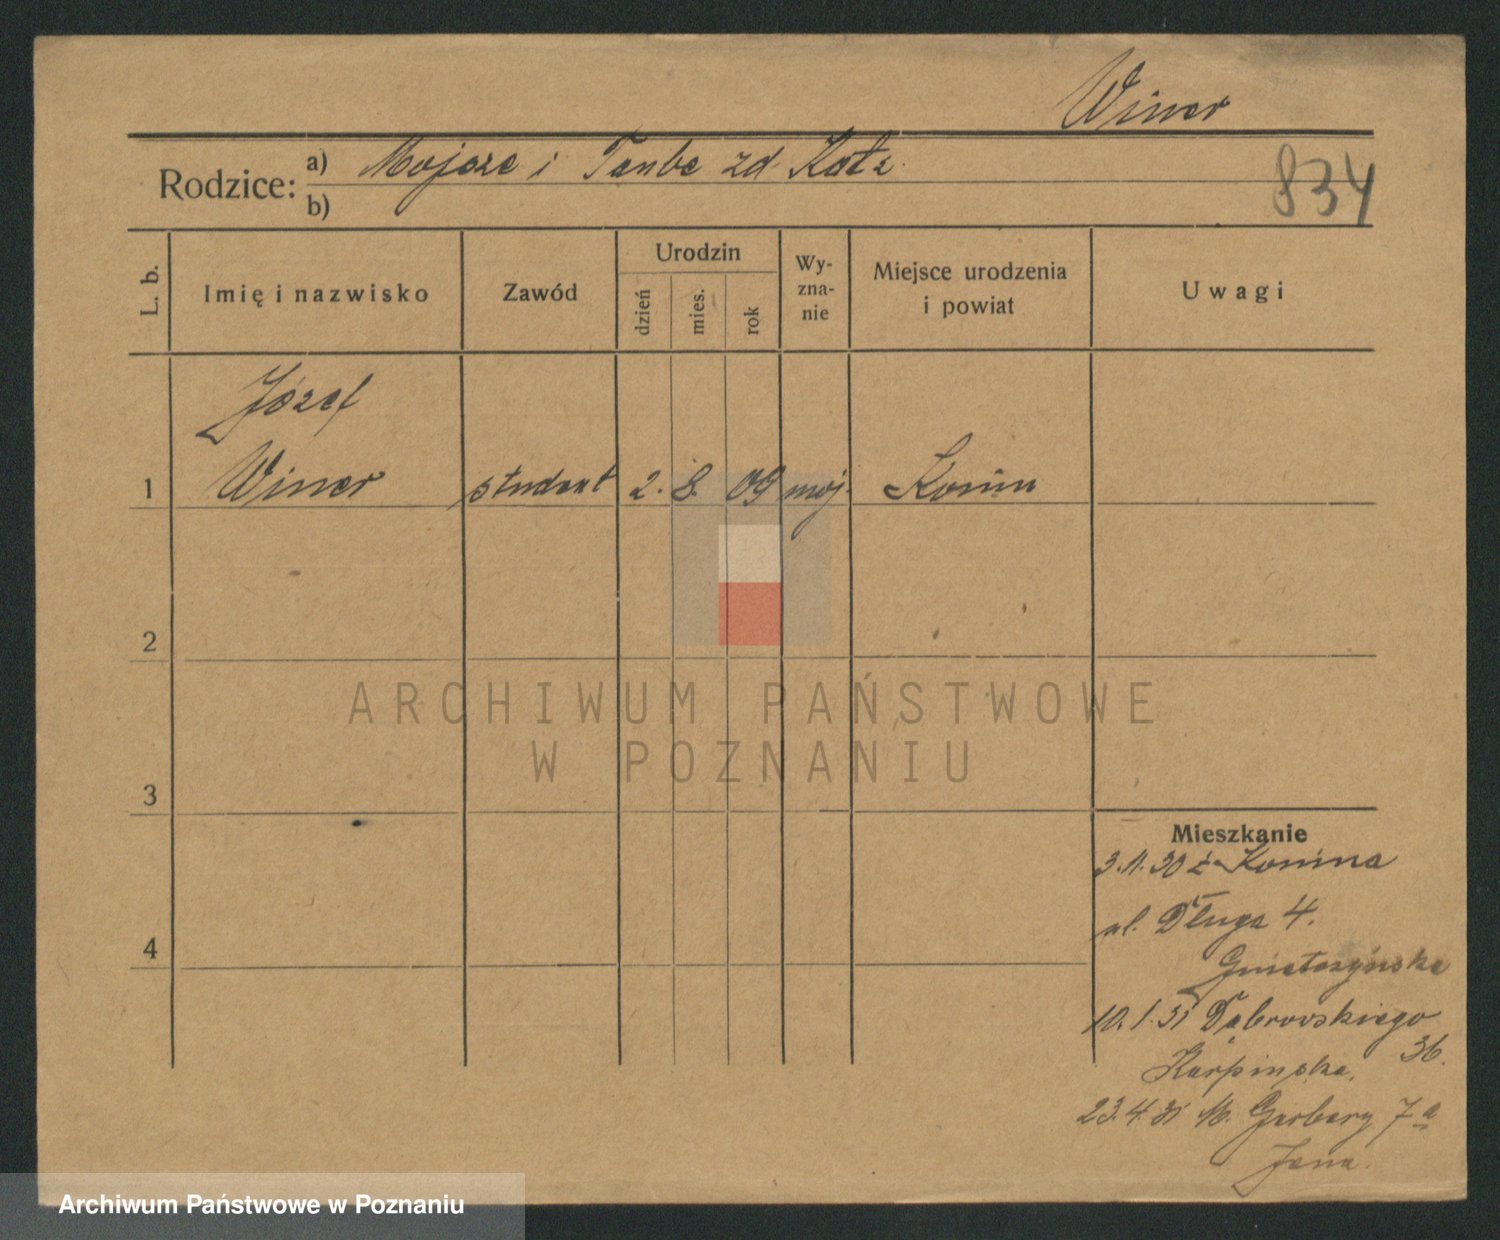 Winer
Rodzice: a) Mojsze i Taube zd. Katz.
b)
834
L. b.
Imię i nazwisko
Zawód
Urodzin
dzień
mies.
rok
Wy-
zna-
nie
Miejsce urodzenia
i powiat
Uwagi
Józef
1 Winer student 2. 8. 09 mojż. Konin
2
3
4
Mieszkanie
3.11.30 z Konina
ul. Długa 4.
10.1.31 Dąbrowskiego
36.
Karpinska.
23.4.31 M. Garbary 7a
ARCHIWUM PAŃSTWOWE
W POZNANIU
Archiwum Państwowe w Poznaniu